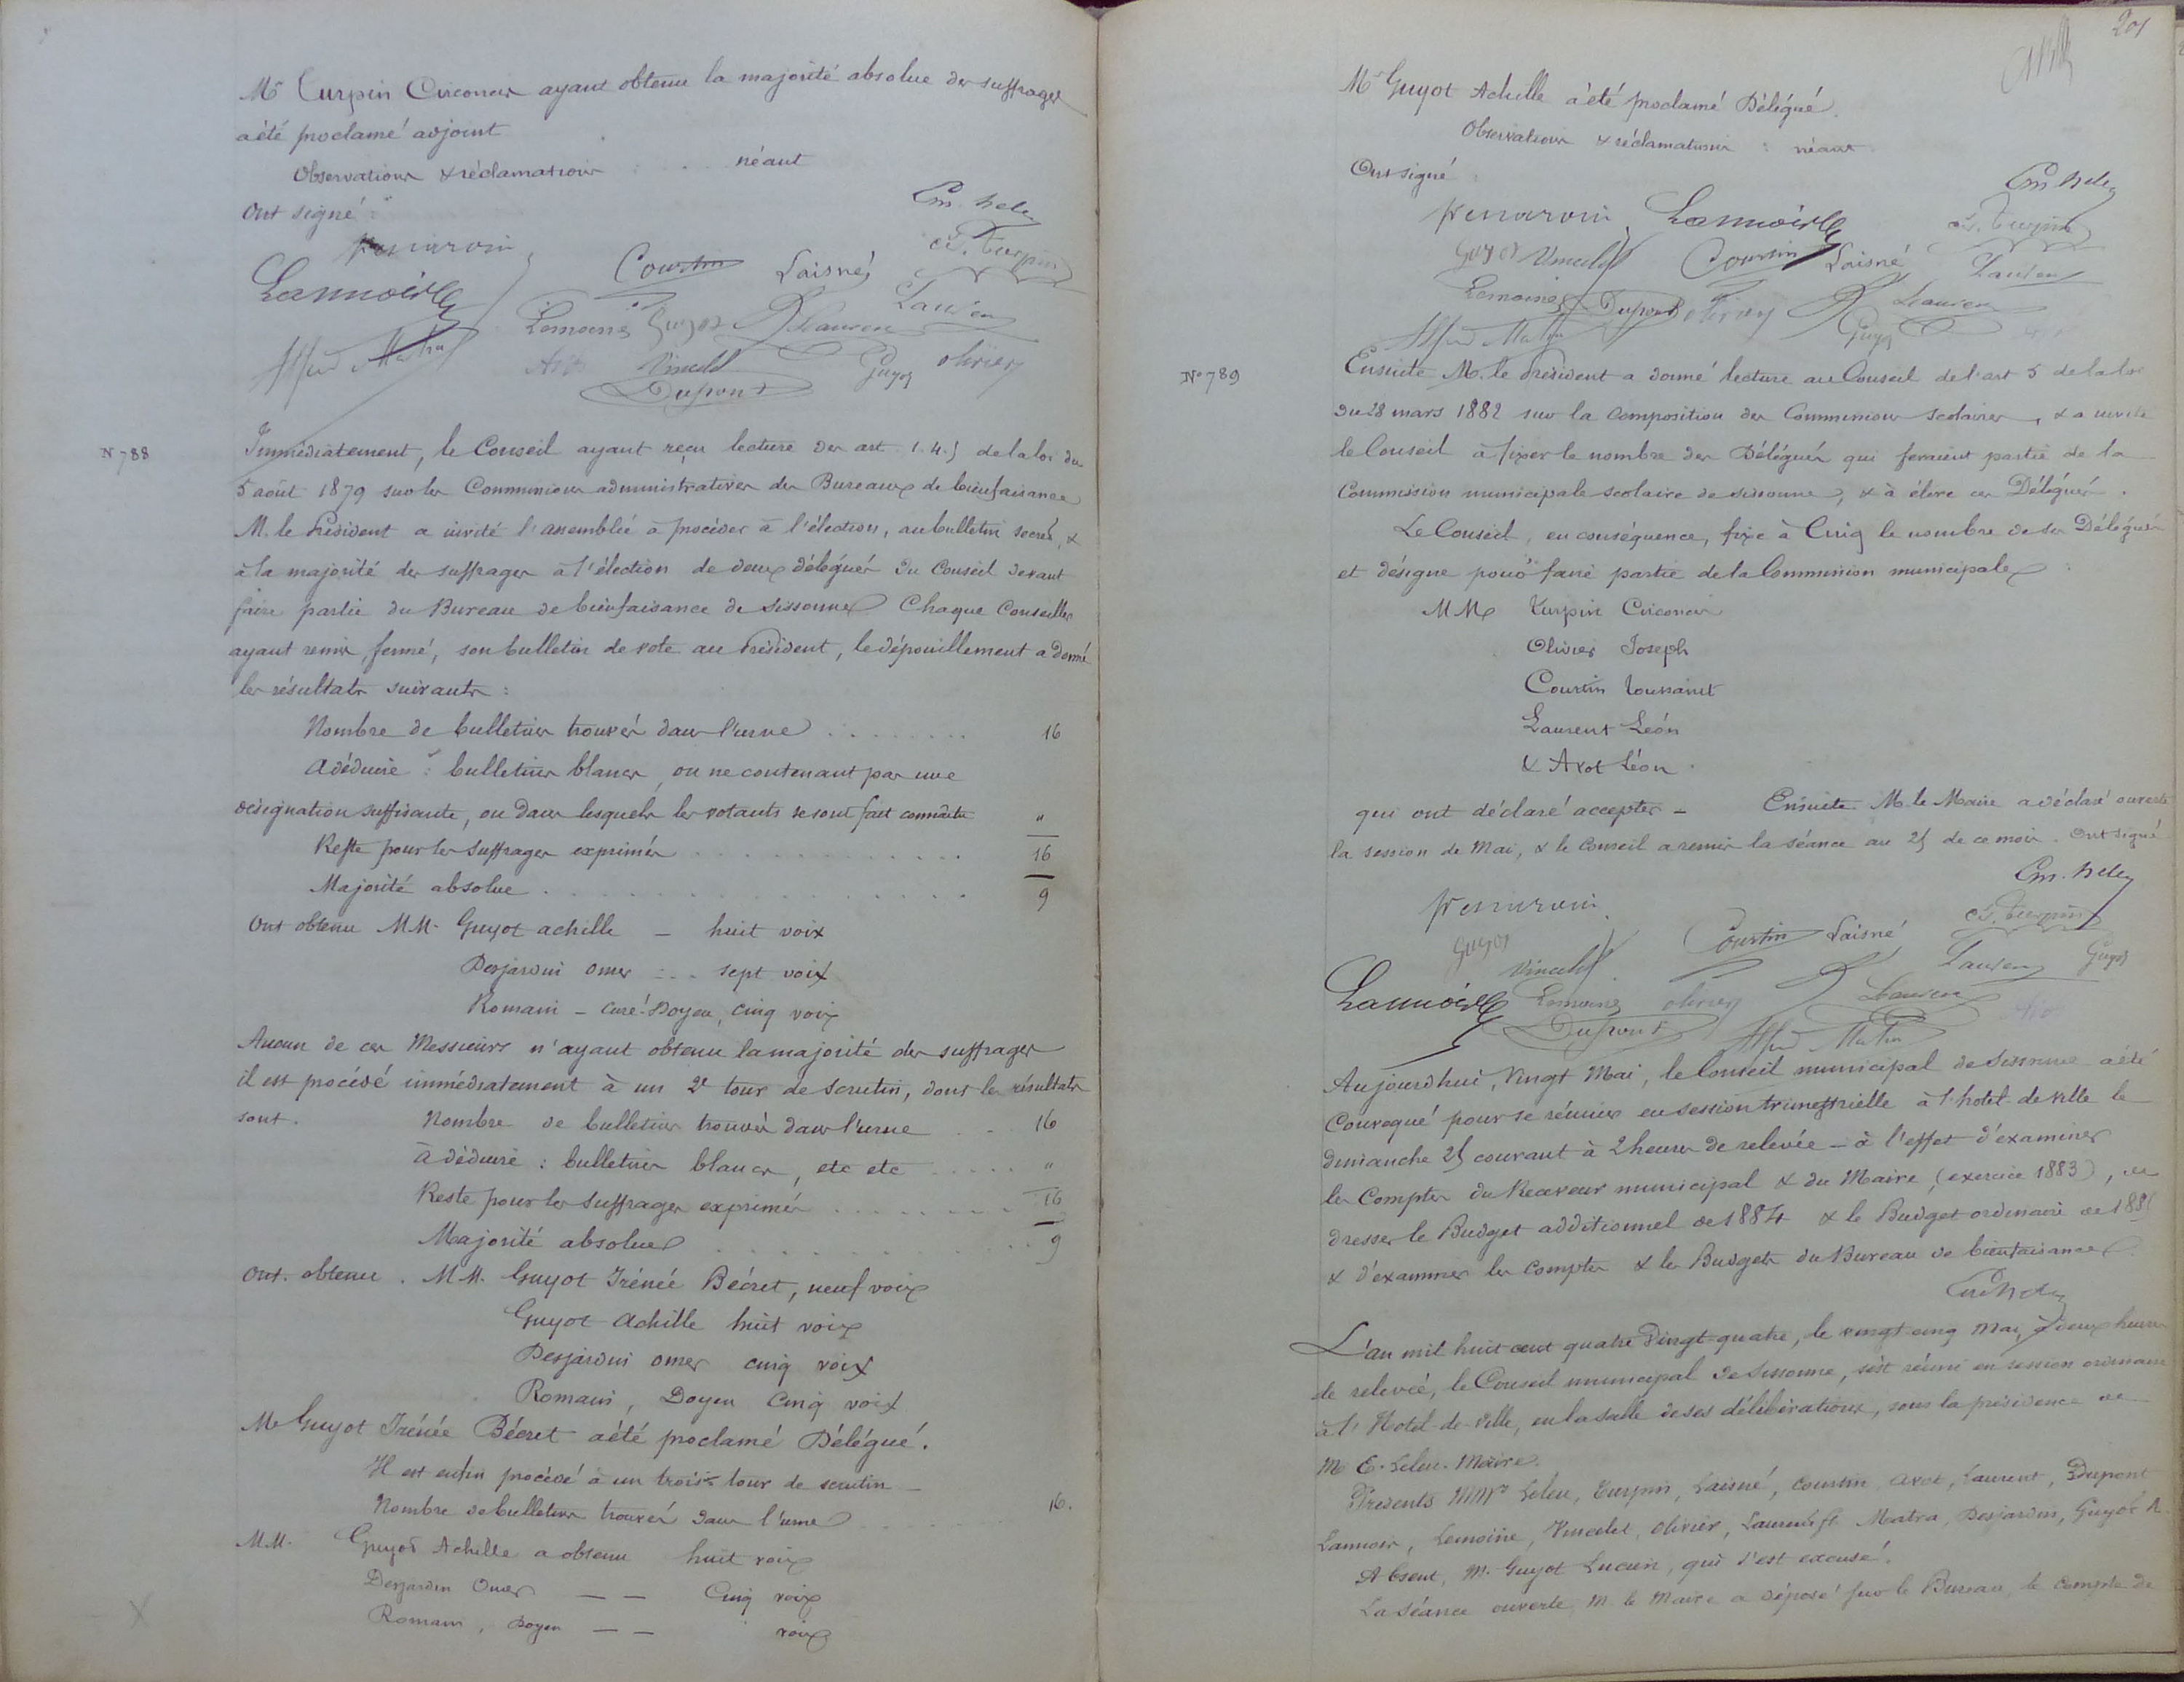 Mr Turpin Ciconin ayant obtenu la majorité absolue des suffrages
a été proclamé adjoint
Observations & réclamations : . . néant
Ont signé :
Em. Leleu
Desjardin
Courtin Laisné C.T. Turpin
Lannois
Lemoine Guyot Laurent
Alfred Matra Avot Vincelet Guyot Olivier
Dupont
N° 788
Immédiatement, le Conseil ayant reçu lecture des art. 1. 4. 5 de la loi du
5 août 1879 sur les Commissions administratives des Bureaux de bienfaisance
M. le Président a invité l'assemblée à procéder à l'élection, au bulletin secret, &
à la majorité des suffrages à l'élection de deux délégués du Conseil devant
faire partie du Bureau de bienfaisance de Sissonne Chaque Conseiller
ayant remis, fermé, son bulletin de vote au Président, le dépouillement a donné
les résultats suivants :
Nombre de bulletins trouvés dans l'urne . . . . . . . . 16
A déduire : bulletins blancs, ou ne contenant pas une
désignation suffisante, ou dans lesquels les votants se sont fait connaître "
Reste pour les suffrages exprimés . . . . . . . . . . . 16
Majorité absolue . . . . . . . . . . . . . 9
Ont obtenu MM. Guyot achille — huit voix
Desjardin Omer . . . sept voix
Romain – curé-Doyen, cinq voix
Aucun de ces Messieurs n'ayant obtenu la majorité des suffrages
il est procédé immédiatement à un 2e tour de scrutin, dont les résultats
sont. Nombre de bulletins trouvés dans l'urne . . 16
à déduire : bulletins blancs, etc etc . . . . . "
Reste pour les suffrages exprimés . . . . . . . . 16
Majorité absolue . . . . . . . . . . . . . 9
Ont obtenu . MM. Guyot Irénée Bécret, neuf voix
Guyot Achille huit voix
Desjardin Omer cinq voix
Romain, Doyen Cinq voix
M Guyot Irénée Bécret a été proclamé Délégué.
Il est enfin procédé à un trois.e tour de scrutin —
Nombre de bulletins trouvés dans l'urne . . . . . 16.
MM. Guyot Achille a obtenu huit voix
Desjardin Omer — — Cinq voix
Romain, Doyen — — voix
201
Mr Guyot Achille a été proclamé Délégué.
Observations & réclamations : néant
Ont signé :
Em. Leleu
Desjardin Lannois C.T. Turpin
Guyot Vincelet Courtin Laisné Laurent
Lemoine Dupont Olivier Laurent
Alfred Matra Guyot
N° 789
Ensuite M. le Président a donné lecture au Conseil de l'art 5 de la loi
du 28 mars 1882 sur la composition des Commissions scolaires, & a invité
le Conseil à fixer le nombre des Délégués qui feraient partie de la
Commission municipale scolaire de Sissonne, & à élire ces Délégués.
Le Conseil, en conséquence, fixe à Cinq le nombre de ses Délégués
et désigne pour faire partie de la Commission municipale :
MM Turpin Ciconin
Olivier Joseph
Courtin Toussaint
Laurent Léon
& Avot Léon.
qui ont déclaré accepter – Ensuite M. le Maire a déclaré ouverte
la session de Mai, & le Conseil a remis la séance au 25 de ce mois. Ont signé
Em. Leleu
Desjardin
Courtin Laisné C.T. Turpin
Guyot Vincelet Laurent Guyot
Lannois Lemoine Olivier Laurent Avot
Dupont Alfred Matra
Aujourd'hui, Vingt Mai, le Conseil municipal de Sissonne a été
Convoqué pour se réunir en session trimestrielle à l'hotel de ville le
dimanche 25 courant à 2 heures de relevée — à l'effet d'examiner
les Comptes du Receveur municipal & du Maire, (exercice 1883), de
dresser le Budget additionnel de 1884 & le Budget ordinaire de 1885
& d'examiner les Comptes & les Budgets du Bureau de bienfaisance.
Em. Leleu
L'an mil huit cent quatre Vingt-quatre, le vingt cinq Mai, à deux heures
de relevée, le Conseil municipal de Sissonne, s'est réuni en session ordinaire
à l'Hotel-de-ville, en la salle de ses délibérations, sous la présidence de
M E. Leleu. Maire.
Présents MMrs Leleu, Turpin, Laisné, Courtin avot, Laurent, Dupont
Lannois, Lemoine, Vincelet, Olivier, Laurent ft. Matra, Desjardin, Guyot A.
Absent, M. Guyot Lucien, qui s'est excusé.
La séance ouverte, M. le Maire a déposé sur le Bureau, le compte de